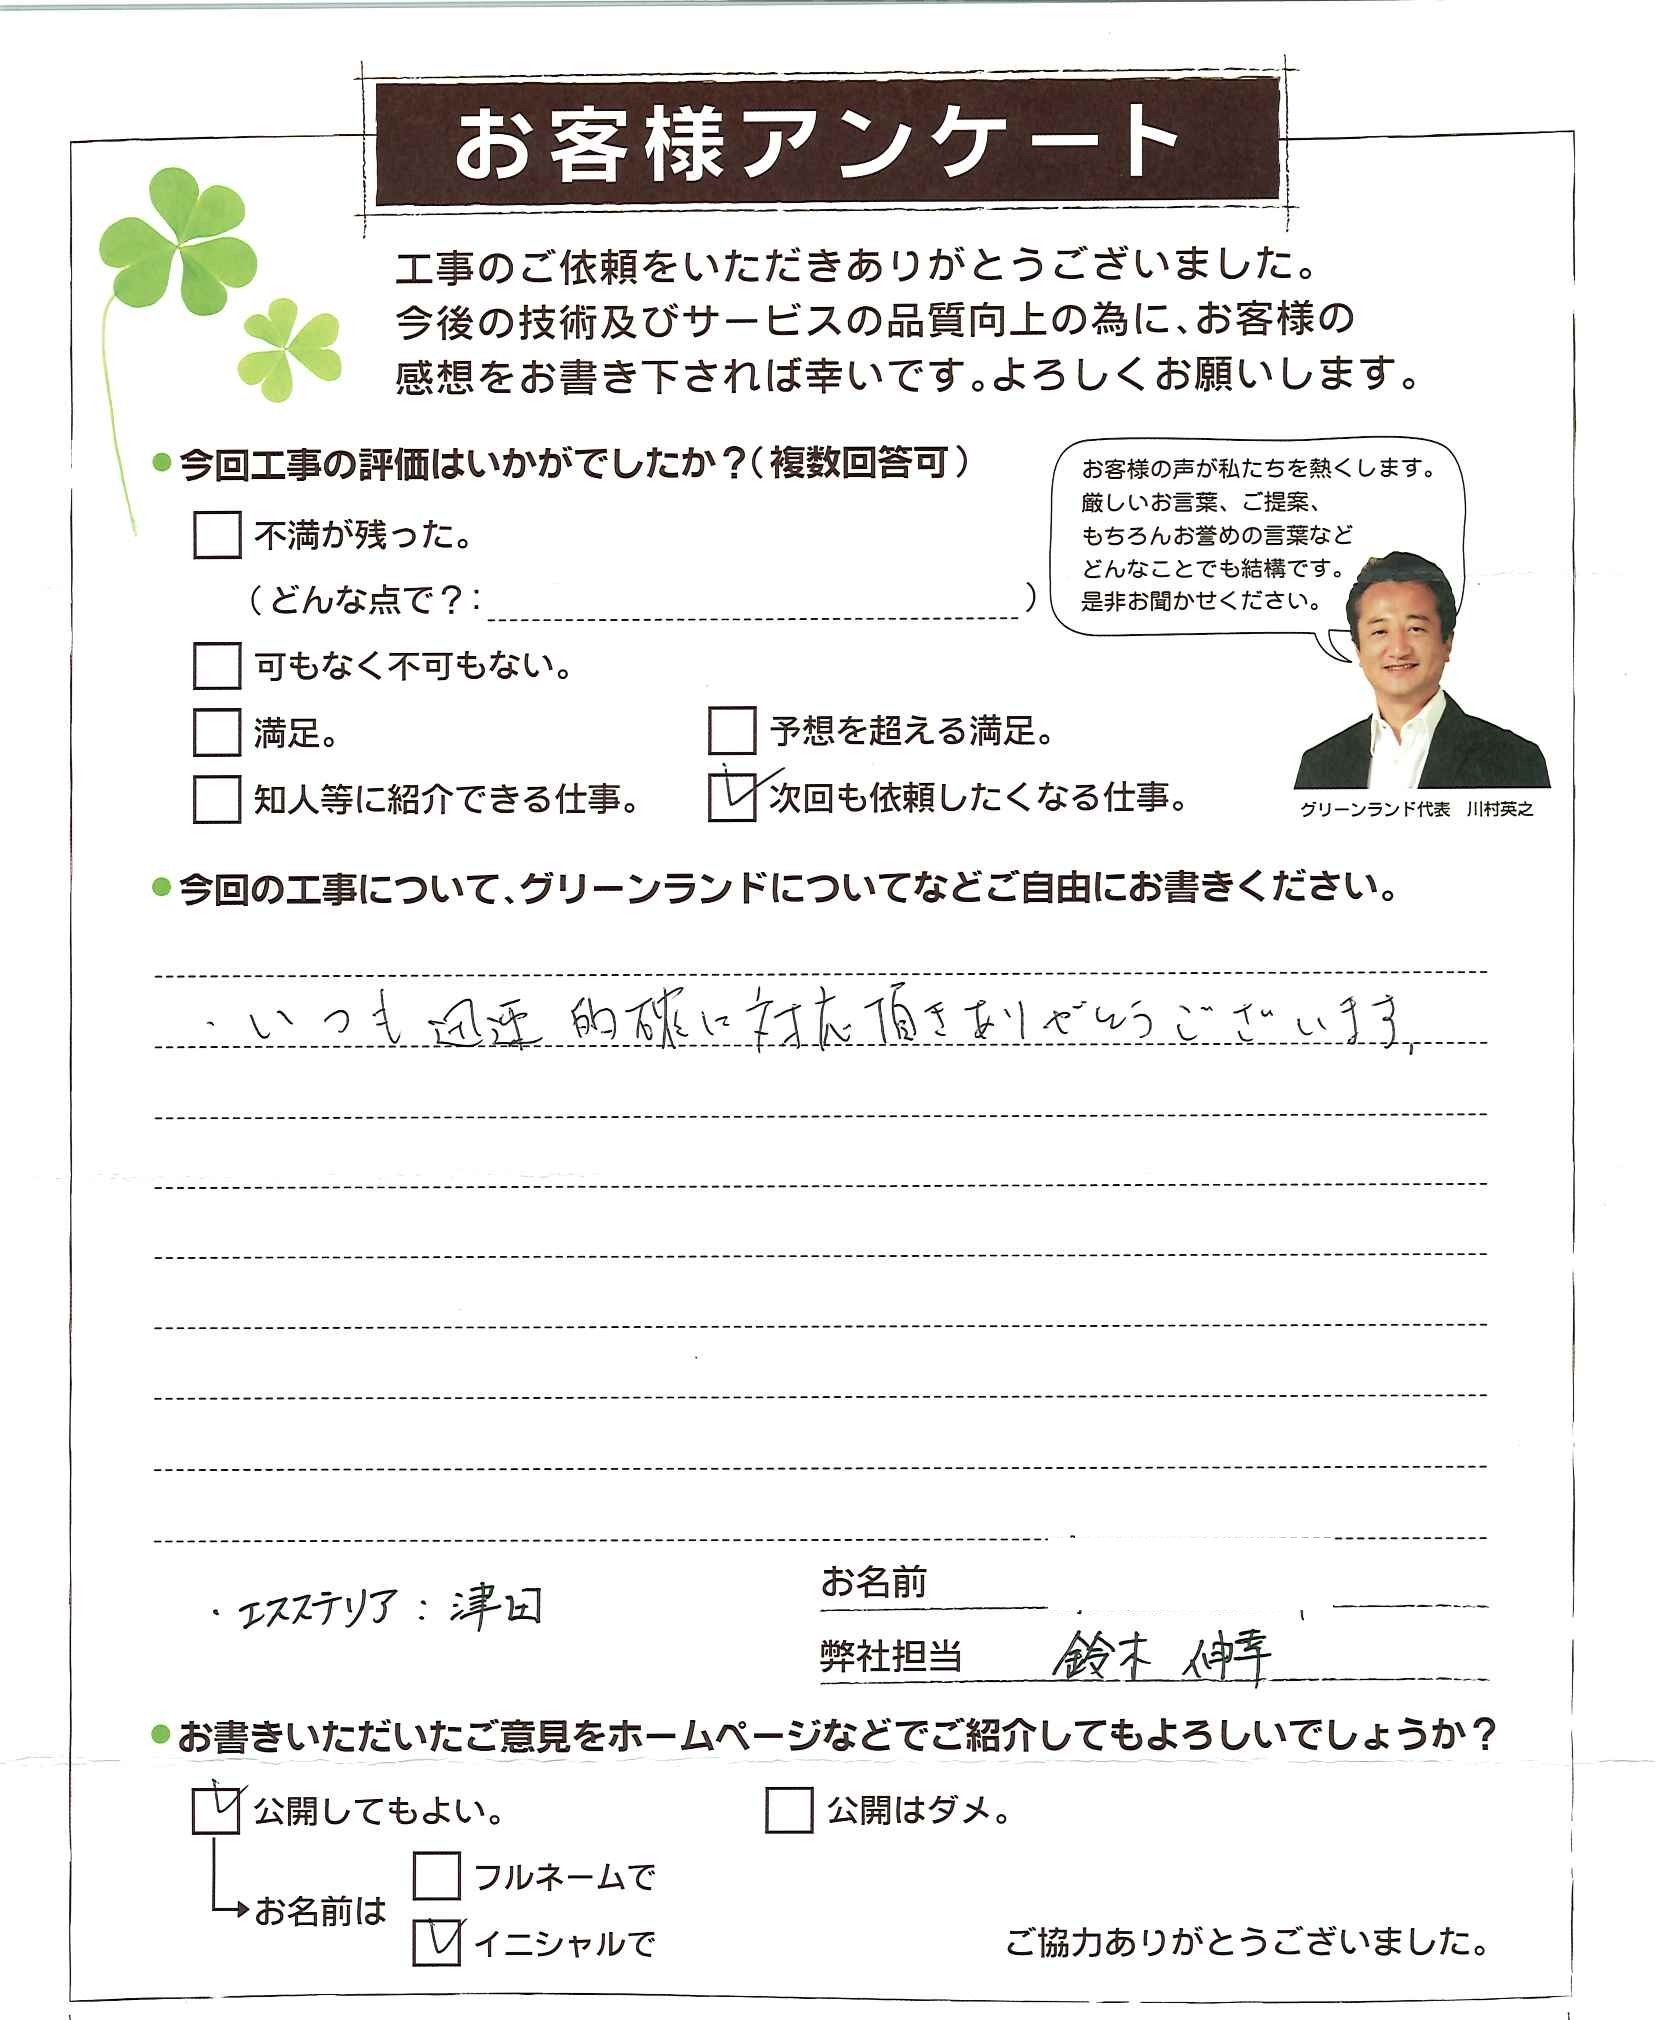 お客様アンケート
工事のご依頼をいただきありがとうございました。
今後の技術及びサービスの品質向上の為に、お客様の
感想をお書き下されば幸いです。よろしくお願いします。
●今回工事の評価はいかがでしたか？（複数回答可）
不満が残った。
（どんな点で？： ）
可もなく不可もない。
満足。
予想を超える満足。
知人等に紹介できる仕事。
次回も依頼したくなる仕事。
お客様の声が私たちを熱くします。
厳しいお言葉、ご提案、
もちろんお誉めの言葉など
どんなことでも結構です。
是非お聞かせください。
グリーンランド代表 川村英之
●今回の工事について、グリーンランドについてなどご自由にお書きください。
・いつも迅速 的確に対応頂きありがとうございます。
・エクステリア：津田
お名前
弊社担当 鈴木 伸幸
●お書きいただいたご意見をホームページなどでご紹介してもよろしいでしょうか？
公開してもよい。
公開はダメ。
お名前は
フルネームで
イニシャルで
ご協力ありがとうございました。